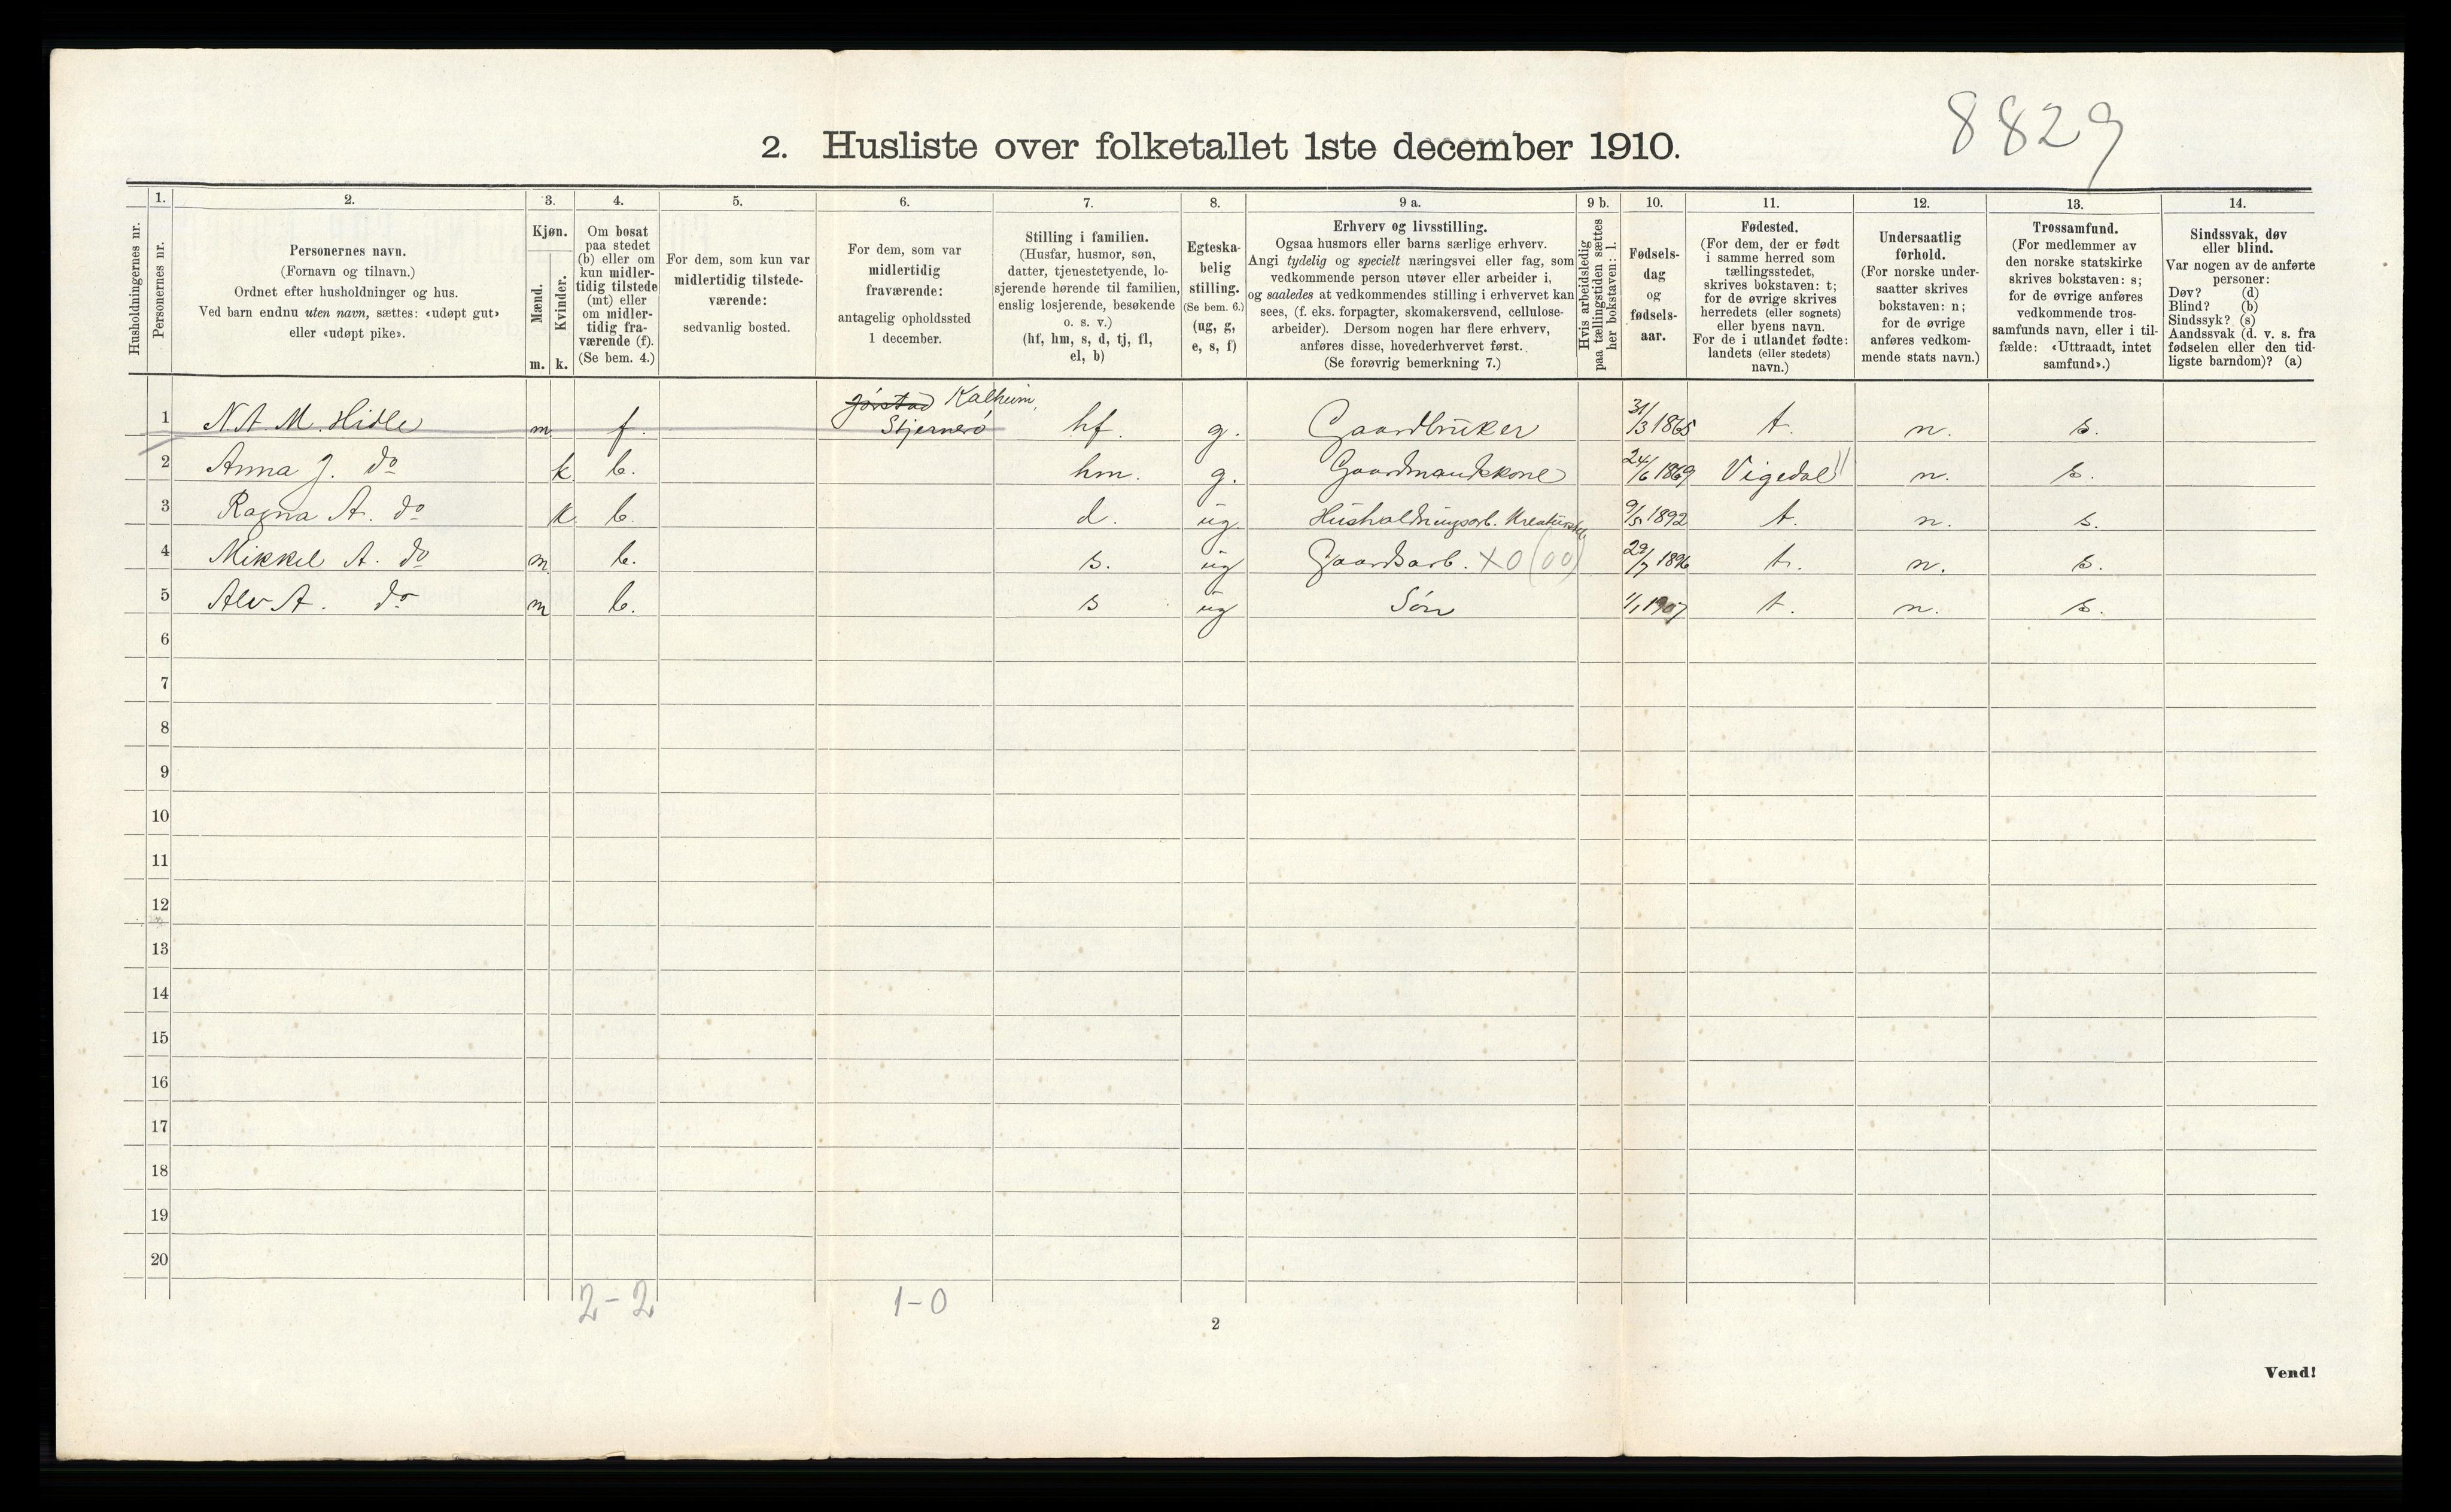 8829
2. Husliste over folketallet 1ste december 1910.
1. 2. 3. 4. 5. 6. 7. 8. 9 a. 9 b. 10. 11. 12. 13. 14.
Husholdningernes nr.
Personernes nr.
Personernes navn.
(Fornavn og tilnavn.)
Ordnet efter husholdninger og hus.
Ved barn endnu uten navn, sættes: «udøpt gut»
eller «udøpt pike».
Kjøn.
Mænd.
Kvinder.
m. k.
Om bosat
paa stedet
(b) eller om
kun midler-
tidig tilstede
(mt) eller
om midler-
tidig fra-
værende (f).
(Se bem. 4.)
For dem, som kun var
midlertidig tilstede-
værende:
sedvanlig bosted.
For dem, som var
midlertidig
fraværende:
antagelig opholdssted
1 december.
Stilling i familien.
(Husfar, husmor, søn,
datter, tjenestetyende, lo-
sjerende hørende til familien,
enslig losjerende, besøkende
o. s. v.)
(hf, hm, s, d, tj, fl,
el, b)
Egteska-
belig
stilling.
(Se bem. 6.)
(ug, g,
e, s, f)
Erhverv og livsstilling.
Ogsaa husmors eller barns særlige erhverv.
Angi tydelig og specielt næringsvei eller fag, som
vedkommende person utøver eller arbeider i,
og saaledes at vedkommendes stilling i erhvervet kan
sees, (f. eks. forpagter, skomakersvend, cellulose-
arbeider). Dersom nogen har flere erhverv,
anføres disse, hovederhvervet først.
(Se forøvrig bemerkning 7.)
Hvis arbeidsledig
paa tællingstiden sættes
her bokstaven: l.
Fødsels-
dag
og
fødsels-
aar.
Fødested.
(For dem, der er født
i samme herred som
tællingsstedet,
skrives bokstaven: t;
for de øvrige skrives
herredets (eller sognets)
eller byens navn.
For de i utlandet fødte:
landets (eller stedets)
navn.)
Undersaatlig
forhold.
(For norske under-
saatter skrives
bokstaven: n;
for de øvrige
anføres vedkom-
mende stats navn.)
Trossamfund.
(For medlemmer av
den norske statskirke
skrives bokstaven: s;
for de øvrige anføres
vedkommende tros-
samfunds navn, eller i til-
fælde: «Uttraadt, intet
samfund».)
Sindssvak, døv
eller blind.
Var nogen av de anførte
personer:
Døv? (d)
Blind? (b)
Sindssyk? (s)
Aandssvak (d. v. s. fra
fødselen eller den tid-
ligste barndom)? (a)
Jøstad Kalheim,
1 N. A. M. Hidle m f. Stjernerö hf. g. Gaardbruker 31/3 1865 t. n. s.
2 Anna J. do k b. hm. g. Gaardmandskone 24/6 1869 Vigedal n. s.
3 Ragna A. do k b. d. ug. Husholdningsarb. 9/5 1892 t. n. s.
4 Mikkel A. do m b. s. ug Gaardsarb. XO (00) 29/7 1896 t. n. s.
5 Alv A. do m b. s ug Sön 1/1 1907 t. n. s.
6
7
8
9
10
11
12
13
14
15
16
17
18
19
20
2-2 1-0
2
Vend!